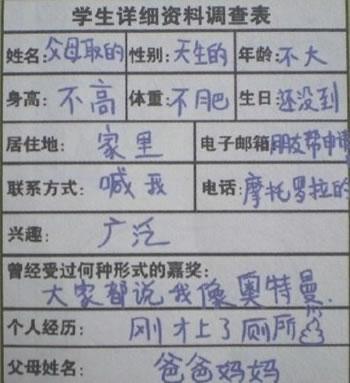 学生详细资料调查表
姓名:父母取的 性别:天生的 年龄:不大
身高:不高 体重:不肥 生日:还没到
居住地:家里 电子邮箱朋友帮申请
联系方式:喊我 电话:摩托罗拉的
兴趣:广泛
曾经受过何种形式的嘉奖:
大家都说我像奥特曼.
个人经历:刚才上了厕所
父母姓名:爸爸妈妈